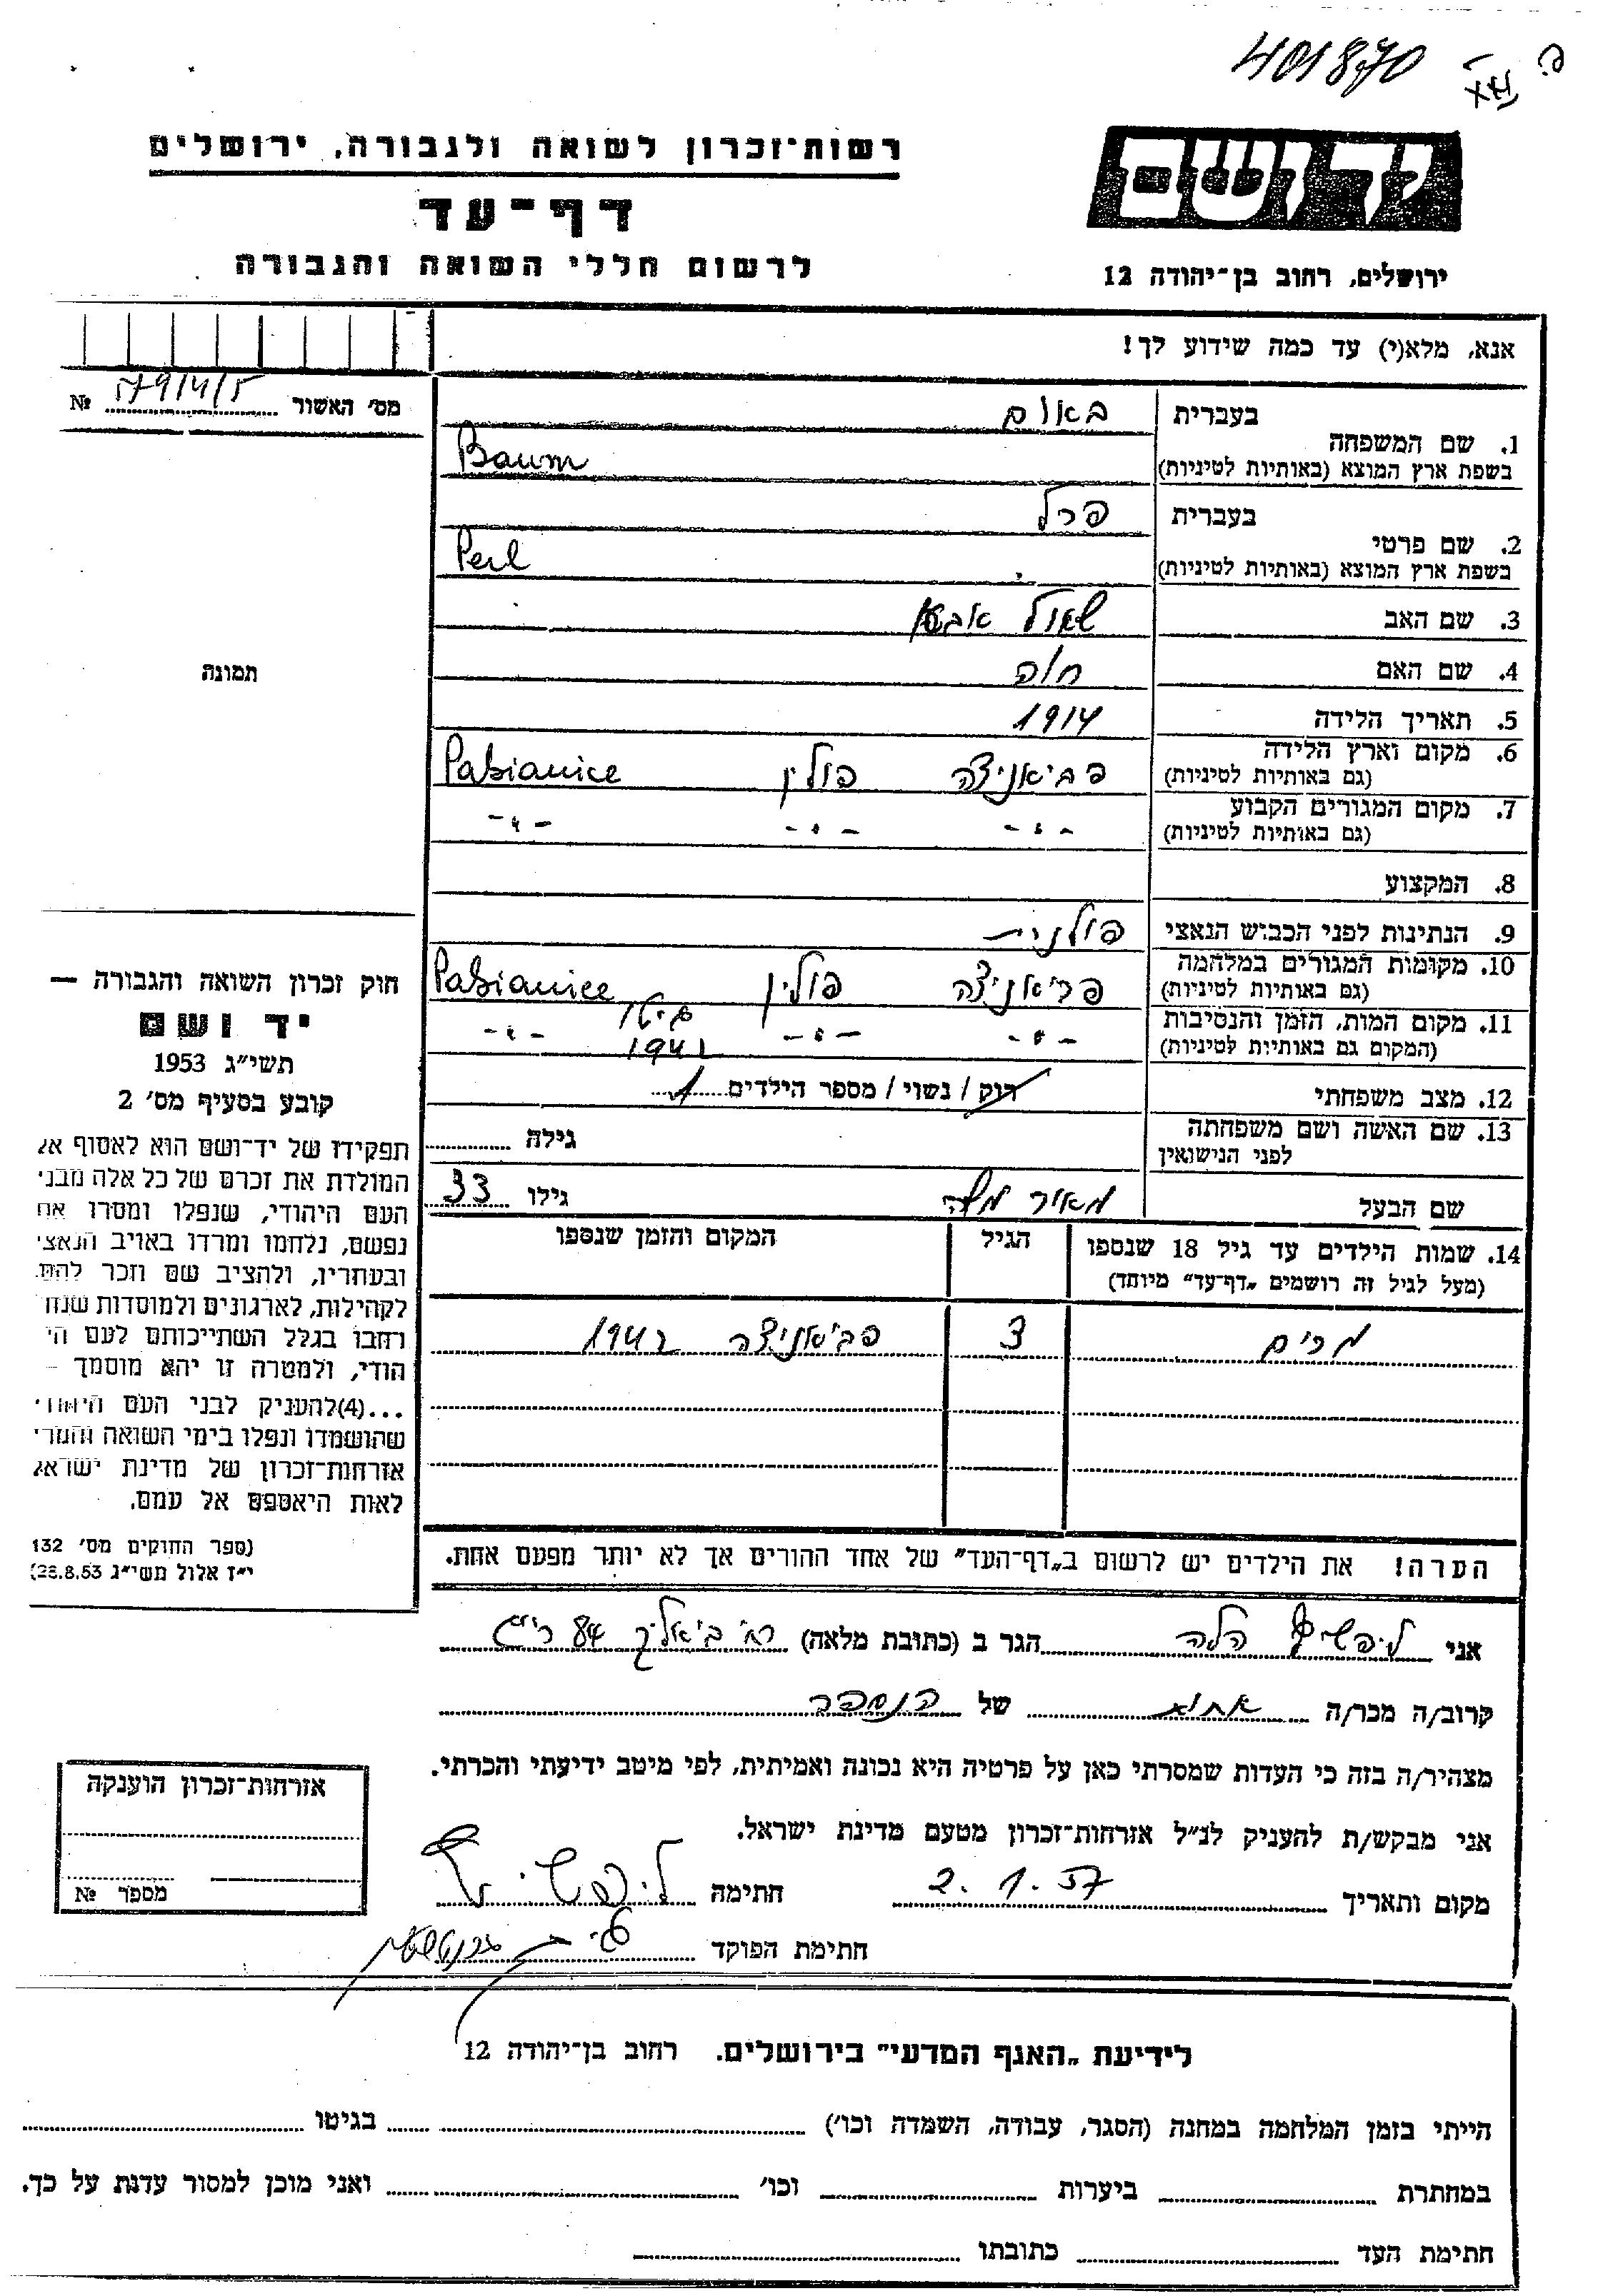 401870
רשות־זכרון לשואה ולגבורה, ירושלים
דף־עד
לרשום חללי השואה והגבורה
יד ושם
ירושלים, רחוב בן־יהודה 12
אנא, מלא(י) עד כמה שידוע לך!
מס׳ האשור 579/4/5 №
בעברית באום
1. שם המשפחה
בשפת ארץ המוצא (באותיות לטיניות) Baum
בעברית פרל
2. שם פרטי
בשפת ארץ המוצא (באותיות לטיניות) Perl
3. שם האב שאול אבא
4. שם האם חוה
תמונה
5. תאריך הלידה 1914
6. מקום וארץ הלידה
(גם באותיות לטיניות) פביאניצה פולין Pabianice
7. מקום המגורים הקבוע
(גם באותיות לטיניות) -"- -"- -"-
8. המקצוע
9. הנתינות לפני הכבוש הנאצי פולנית
10. מקומות המגורים במלחמה
(גם באותיות לטיניות) פביאניצה פולין Pabianice
11. מקום המות, הזמן והנסיבות
(המקום גם באותיות לטיניות) -"- -"- גיטו 1942 -"-
12. מצב משפחתי רוק / נשוי / מספר הילדים 1
13. שם האשה ושם משפחתה
לפני הנישואין גילה
שם הבעל מאיר משה גילו 33
14. שמות הילדים עד גיל 18 שנספו
(מעל לגיל זה רושמים „דף־עד" מיוחד)
הגיל
המקום והזמן שנספו
מרים 3 פביאניצה 1942
הערה! את הילדים יש לרשום ב„דף־העד" של אחד ההורים אך לא יותר מפעם אחת.
חוק זכרון השואה והגבורה —
יד ושם
תשי״ג 1953
קובע בסעיף מס׳ 2
תפקידו של יד־ושם הוא לאסוף אל
המולדת את זכרם של כל אלה מבני
העם היהודי, שנפלו ומסרו את
נפשם, נלחמו ומרדו באויב הנאצי
ובעוזריו, ולהציב שם וזכר להם,
לקהילות, לארגונים ולמוסדות שנח
רחבו בגלל השתייכותם לעם הי
הודי, ולמטרה זו יהא מוסמך –
...(4) להעניק לבני העם היהודי
שהושמדו ונפלו בימי השואה והמרי
אזרחות־זכרון של מדינת ישראל
לאות היאספם אל עמם.
(ספר החוקים מס׳ 132
י״ז אלול תשי״ג 28.8.53)
אני ליפשיץ הלה הגר ב (כתובת מלאה) רח׳ ביאליק 84
קרוב/ה מכר/ה אחות של הנספה
מצהיר/ה בזה כי העדות שמסרתי כאן על פרטיה היא נכונה ואמיתית, לפי מיטב ידיעתי והכרתי.
אני מבקש/ת להעניק לנ״ל אזרחות־זכרון מטעם מדינת ישראל.
מקום ותאריך 2.1.57 חתימה ליפשיץ
חתימת הפוקד
אזרחות־זכרון הוענקה
מספר №
לידיעת „האגף המדעי" בירושלים. רחוב בן־יהודה 12
הייתי בזמן המלחמה במחנה (הסגר, עבודה, השמדה וכו׳) בגיטו
במחתרת ביערות וכו׳ ואני מוכן למסור עדות על כך.
חתימת העד כתובתו